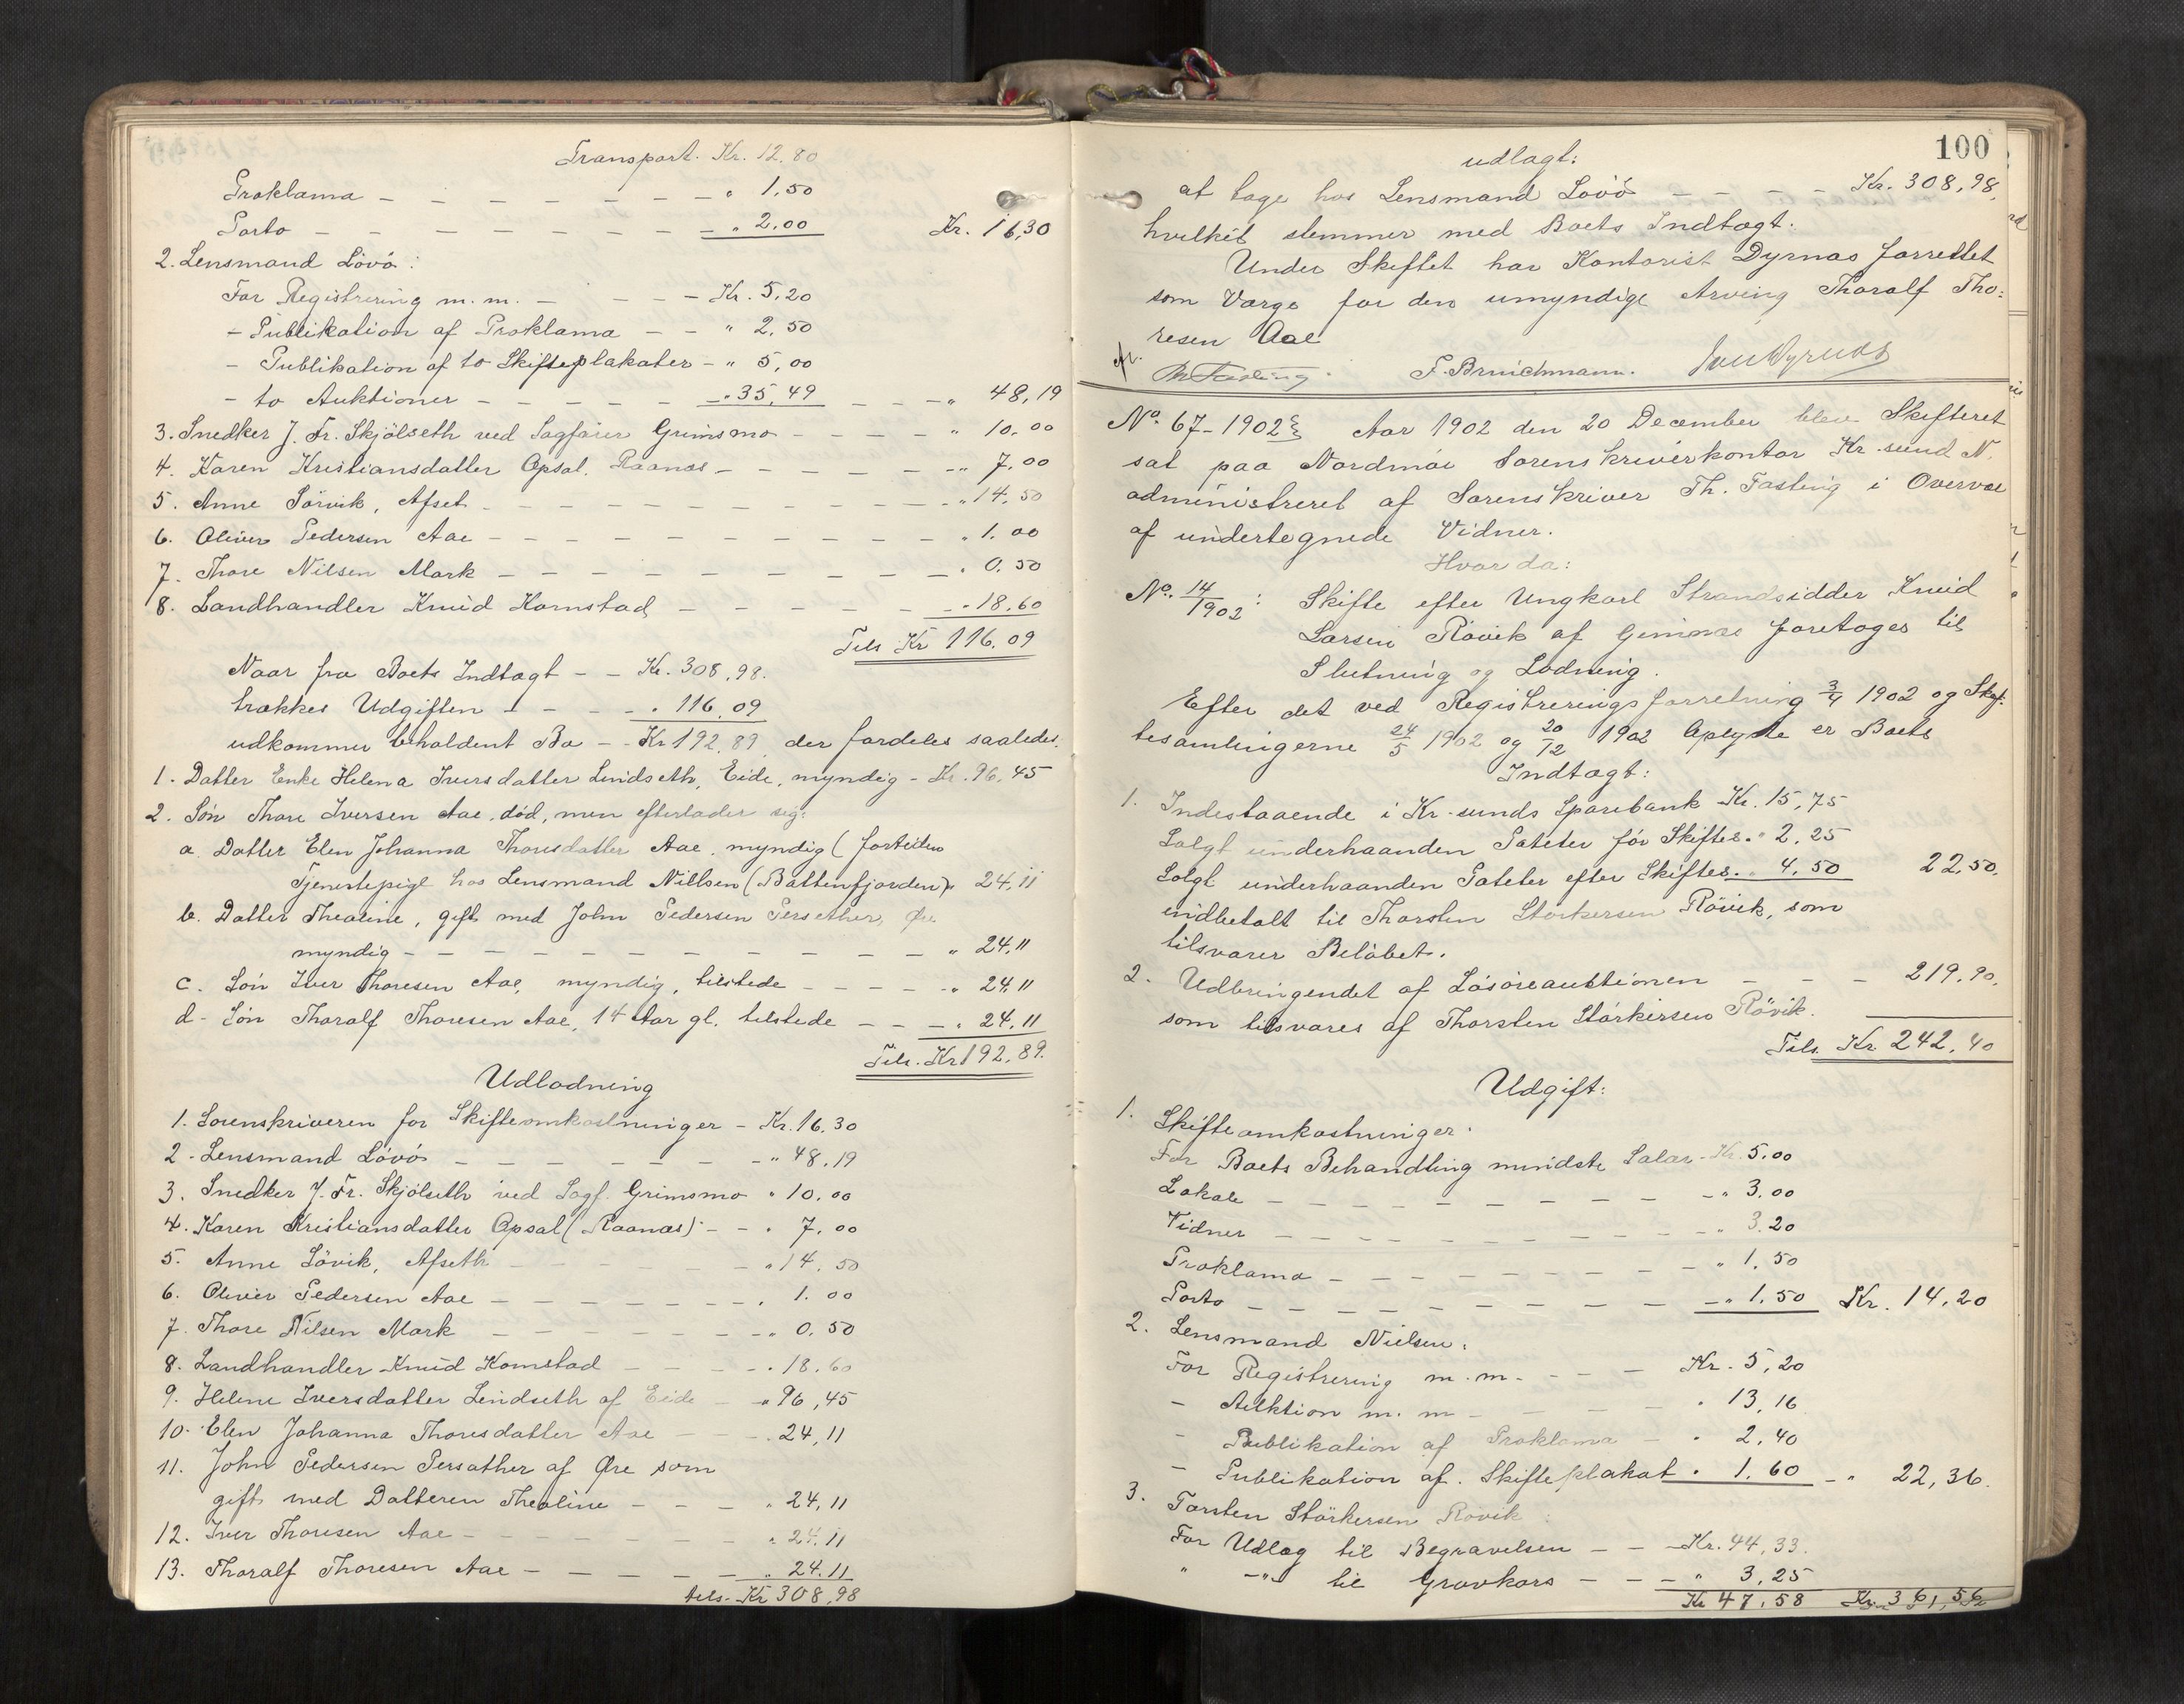 Transport. Kr. 12.80
Proklama - - - - - - - - " 1,50
Porto - - - - - - - - " 2,00 Kr. 16,30
2. Lensmand Lövö:
For Registrering m. m. - - - - Kr. 5,20
- Publikation af Proklama - - " 2,50
- Publikation af to Skifteplakater - " 5,00
- to Auktioner - - - - - " 35,49 - - - " 48,19
3. Snedker J. Fr. Skjölseth ved Sagförer Grimsmo - - - - " 10,00
4. Karen Kristiansdatter Opsal. Raanæs - - - - - - " 7,00
5. Anne Sörvik, Afset - - - - - - - - - " 14,50
6. Oliver Pedersen Aae - - - - - - - - - " 1,00
7. Thore Nilsen Mork - - - - - - - - - " 0,50
8. Landhandler Knud Kornstad - - - - - - " 18,60
Tils Kr 116.09
Naar fra Boets Indtægt - - Kr. 308,98.
trækkes Udgiften - - - - " 116,09
udkommer beholdent Bo - - Kr 192,89 der fordeles saaledes.
1. Datter Enke Helena Iversdatter Lindseth, Eide, myndig - Kr. 96,45
2. Sön Thore Iversen Aae, död, men efterlader sig:
a. Datter Elen Johanna Thoresdatter Aae, myndig (fortiden
Tjenestepige hos Lensmand Nillsen (Battenfjorden) " 24,11
b. Datter Thealine, gift med John Pedersen Persether, Øre
myndig - - - - - - - - - - - " 24,11
c. Sön Iver Thoresen Aae, myndig, tilstede - - - - - " 24,11
d. Sön Thoralf Thoresen Aae, 14 Aar gl. tilstede - - - " 24,11
Tils. Kr 192,89.
Udlodning
1. Sorenskriveren for Skifteomkostninger - Kr. 16.30
2. Lensmand Lövö - - - - - - - " 48,19
3. Snedker J. Fr. Skjölseth ved Sagf. Grimsmo " 10,00
4. Karen Kristiansdatter Opsal (Raanæs) - - " 7,00
5. Anne Sövik, Afseth - - - - - - " 14,50
6. Oliver Pedersen Aae - - - - - - - " 1.00
7. Thore Nilsen Mork - - - - - - - " 0,50
8. Landhandler Knud Kornstad - - - - " 18,60
9. Helene Iversdatter Lindseth af Eide - " 96,45
10. Elen Johanna Thoresdatter Aae - - - " 24,11
11. John Pedersen Persæther af Øre som
gift med Datteren Thealine - - - " 24,11
12. Iver Thoresen Aae - - - - - - - " 24,11
13. Thoralf Thoresen Aae - - - - - " 24.11
tils. Kr 308,98
100
udlagt:
at tage hos Lensmand Lövö - - - - Kr. 308,98,
hvilket stemmer med Boets Indtægt.
Under Skiftet har Kontorist Dyrnæs forrettet
som Værge for den umyndige Arving Thoralf Tho-
resen Aae
Th Fasting. F. Bruichmann. Iver Dyrnæs
No. 67-1902 Aar 1902 den 20 December blev Skifteret
sat paa Nordmöre Sorenskriverkontor Kr.sund N.
administreret af Sorenskriver Th. Fasting i Overvær
af undertegnede Vidner.
Hvorda:
No. 14/1902: Skifte efter Ungkarl Strandsidder Knud
Larsen Rövik af Gimnæs foretages til
Slutning og Lodning.
Efter det ved Registreringsforretning 3/4 1902 og Skif-
tesamlingerne 24/5 1902 og 20/12 1902 Oplyste er Boets
Indtægt:
1. Indestaaende i Kr.sunds Sparebank Kr. 15,75
Solgt underhaanden Poteter för Skiftet. " 2,25
Solgt underhaanden Poteter efter Skiftet. " 4,50 22,50.
indbetalt til Thorsten Störkersen Rövik, som
tilsvarer Belöbet.
2. Udbringendet af Lösöreauktionen - - - 219.90.
som tilsvares af Thorsten Störkersen Rövik.
Tils. Kr 242,40
Udgift:
1. Skifteomkostninger.
For Boets Behandling mindste Salær - Kr. 5.00
Lokale - - - - - - - - " 3.00
Vidner - - - - - - - - " 3.20
Proklama - - - - - - - - " 1,50
Porto - - - - - - - - - - " 1,50 Kr. 14,20
2. Lensmand Nielsen.
For Registrering m. m. - - - - Kr. 5,20
- Auktion m. m - - - - - " 13,16
- Publikation af Proklama - " 2,40
- Publikation af Skifteplakat " 1,60 - " 22,36.
3. Torsten Störkersen Rövik:
For Udlæg til Begravelsen - - Kr. 44,33.
" -"- til Gravkors - - - " 3,25
Kr 47,58 Kr. 36,56